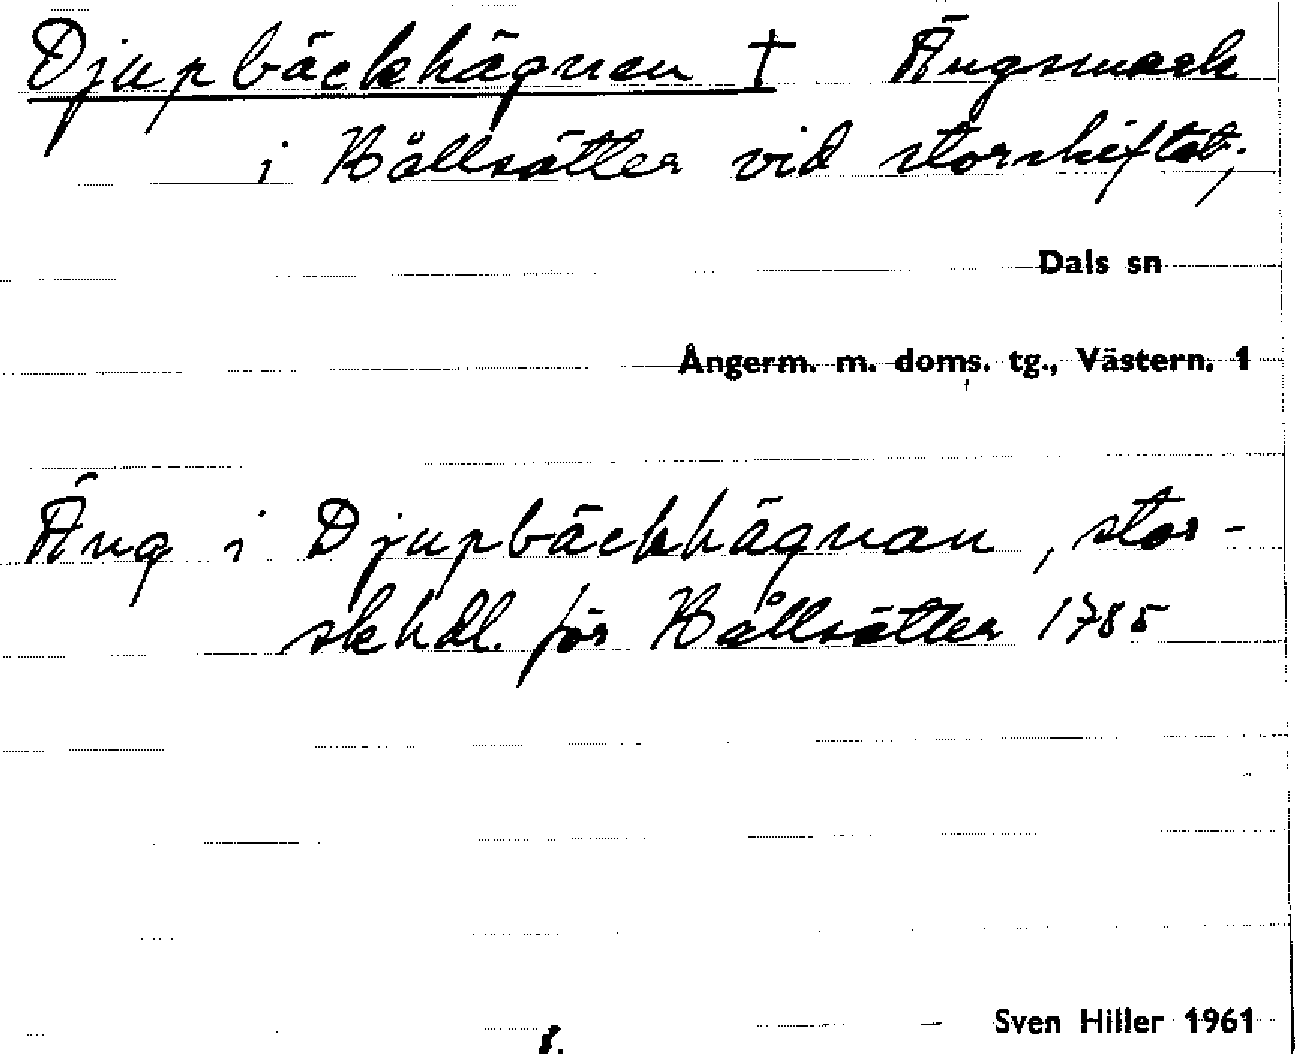 Djupbäckhägnen † Ängsmark
i Hållsätter vid storskiftet;
Dals sn
Ångerm. m. doms. tg., Västern. 1
Äng i Djupbäckhägnan, stor-
sk hdl. för Hållsätter 1785
Sven Hiller 1961